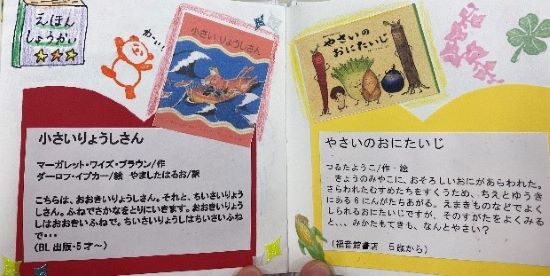 えほん
しょうかい
かわいー!
小さいりょうしさん
小さいりょうしさん
マーガレット・ワイズ・ブラウン/作
ダーロフ・イプカー/絵　やましたはるお/訳
こちらは、おおきいりょうしさん。それと、ちいさいりょう
しさん。ふねでさかなをとりにいきます。おおきいりょうし
はおおきいふねで。ちいさいりょうしはちいさいふね
で・・・
(BL 出版・5才～)
やさいの
おにたいじ
やさいのおにたいじ
つるたようこ/作・絵
きょうのみやこに、おそろしいおにがあらわれた。
さらわれたむすめたちをすくうため、ちえとゆうき
にある6にんがたちあがる。えまきものなどでよく
しられるおにたいじですが、そのすがたをよくみる
と・・、みかたもてきも、なんとやさい?
(福音館書店　5歳から)